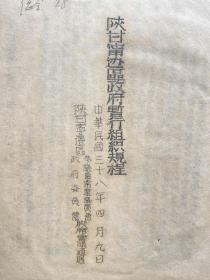 陝甘寧邊區政府暫行組織規程
中華民國三十八年四月九日
陝甘寧邊區
政府委員會
28